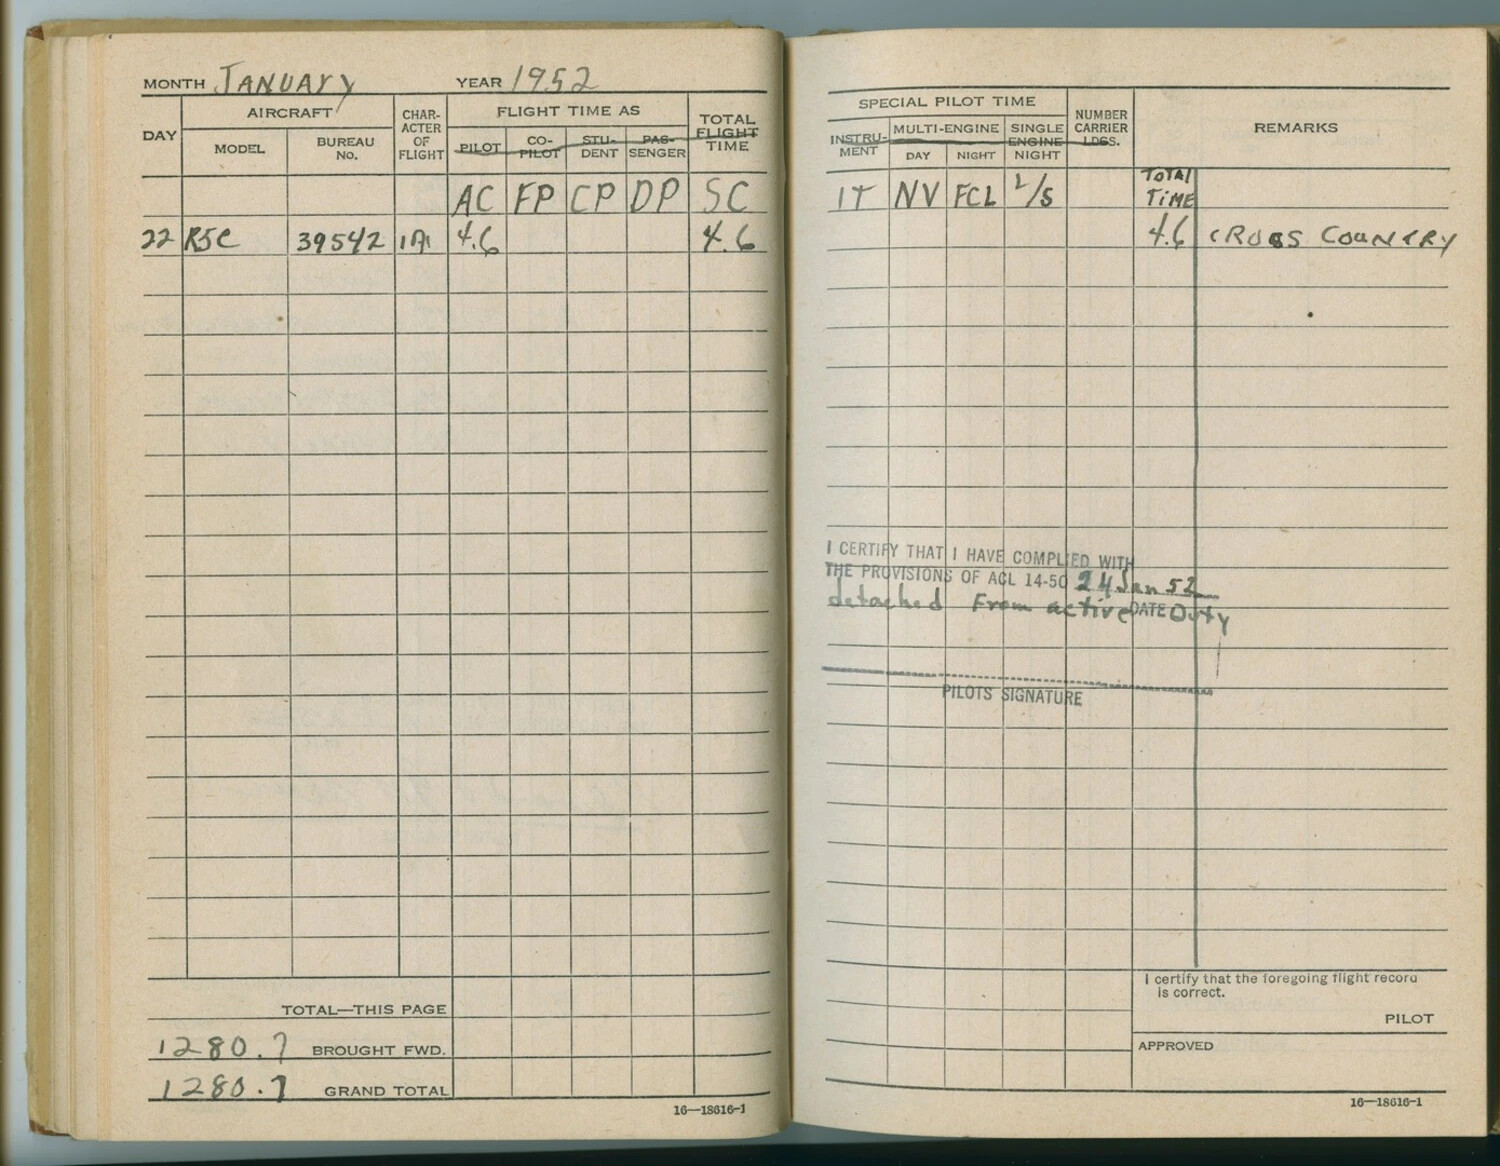 MONTH JANUARY YEAR 1952
DAY AIRCRAFT CHAR-ACTER OF FLIGHT FLIGHT TIME AS TOTAL FLIGHT TIME
MODEL BUREAU NO. PILOT CO-PILOT STU-DENT PAS-SENGER
AC FP CP DP SC
22 R5C 39542 1A1 4.6 4.6
TOTAL—THIS PAGE
1280.7 BROUGHT FWD.
1280.7 GRAND TOTAL
16—18616-1
SPECIAL PILOT TIME NUMBER CARRIER LDGS. REMARKS
INSTRU-MENT MULTI-ENGINE SINGLE ENGINE NIGHT
DAY NIGHT
IT NV FCL L/S TOTAL TIME
4.6 CROSS COUNTRY
I CERTIFY THAT I HAVE COMPLIED WITH
THE PROVISIONS OF ACL 14-50 24 Jan 52
detached From active DATE Duty
PILOTS SIGNATURE
I certify that the foregoing flight record
is correct.
PILOT
APPROVED
16—18616-1